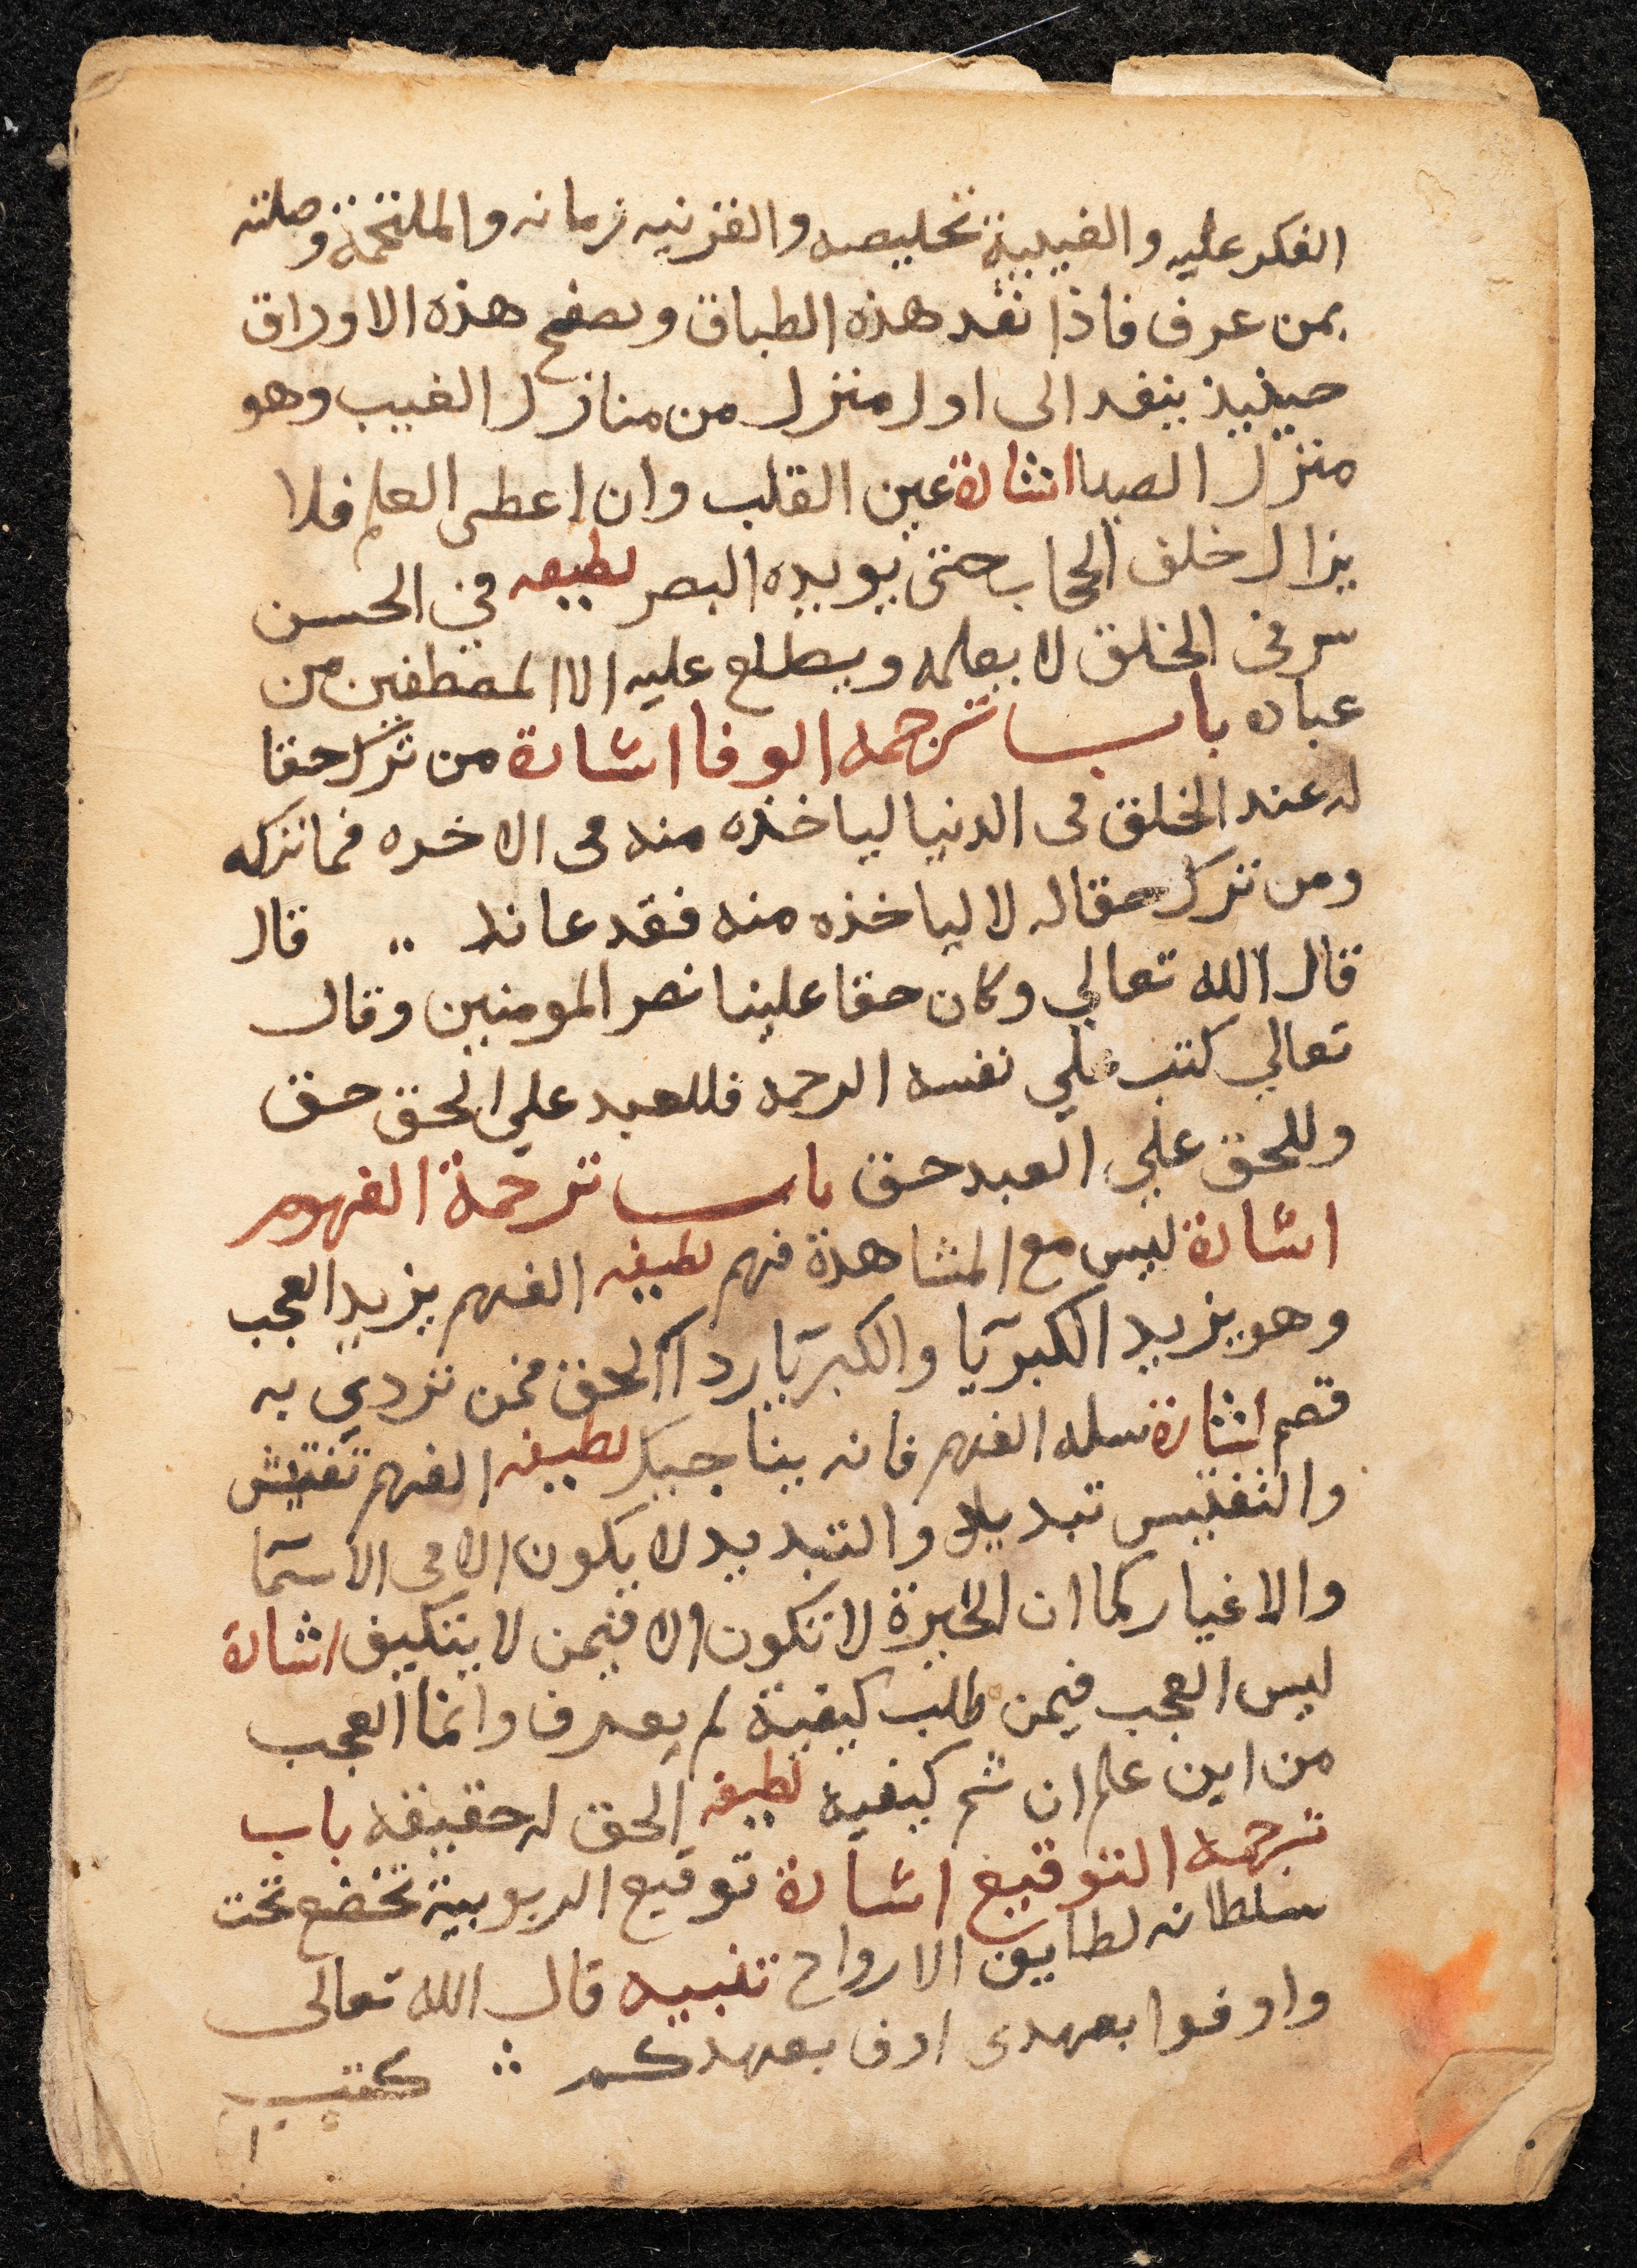 الفكر عليه والغيبية تخليصه والقزنيه زمانه والملتحمة وصلته
بمن عرف فاذا نفد هذه الطباق وتصفح هذه الاوراق
حينيذ ينفد الى اول منزل من منازل الغيب وهو
منزل الصبا اشارة عين القلب وان اعطى العلم فلا
يزال خلف الحجاب حتى يويده البصر لطيفه في الحسن
سر في الخلق لا يعلمه ويطلع عليه الا المصطفين من
عباده باب ترجمه الوفا اشارة من ترك حقا
له عند الخلق فى الدنيا لياخذه منه فى الاخره فما تركه
ومن ترك حقا له لا لياخذه منه فقد عاند ∴ قال
قال الله تعالي وكان حقا علينا نصر المومنين وقال
تعالي كتب علي نفسه الرحمه فللعبد علي الحق حق
وللحق علي العبد حق باب ترجمة الفهوم
اشارة ليس مع المشاهدة فهم لطيفه الفهم يزيد العجب
وهو يزيد الكبريآ والكبريآ ردآ الحق فمن تردي به
قصم اشارة سله الفهم فانه يناجيك لطيفه الفهم تفتيش
والتفتيس تبديد والتبديد لا يكون الا فى الاسمآ
والاغيار كما ان الحيرة لا تكون الا فيمن لا يتكيف اشارة
ليس العجب فيمن طلب كيفية لم يعرف وانما العجب
من اين علم ان ثم كيفية لطيفه الحق له حقيقه باب
ترجمه التوقيع اشارة توقيع الربوبية تخضع تحت
سلطانه لطايف الارواح تنبيه قال الله تعالى
واوفوا بعهدى اوف بعهدكم ∴ كتب